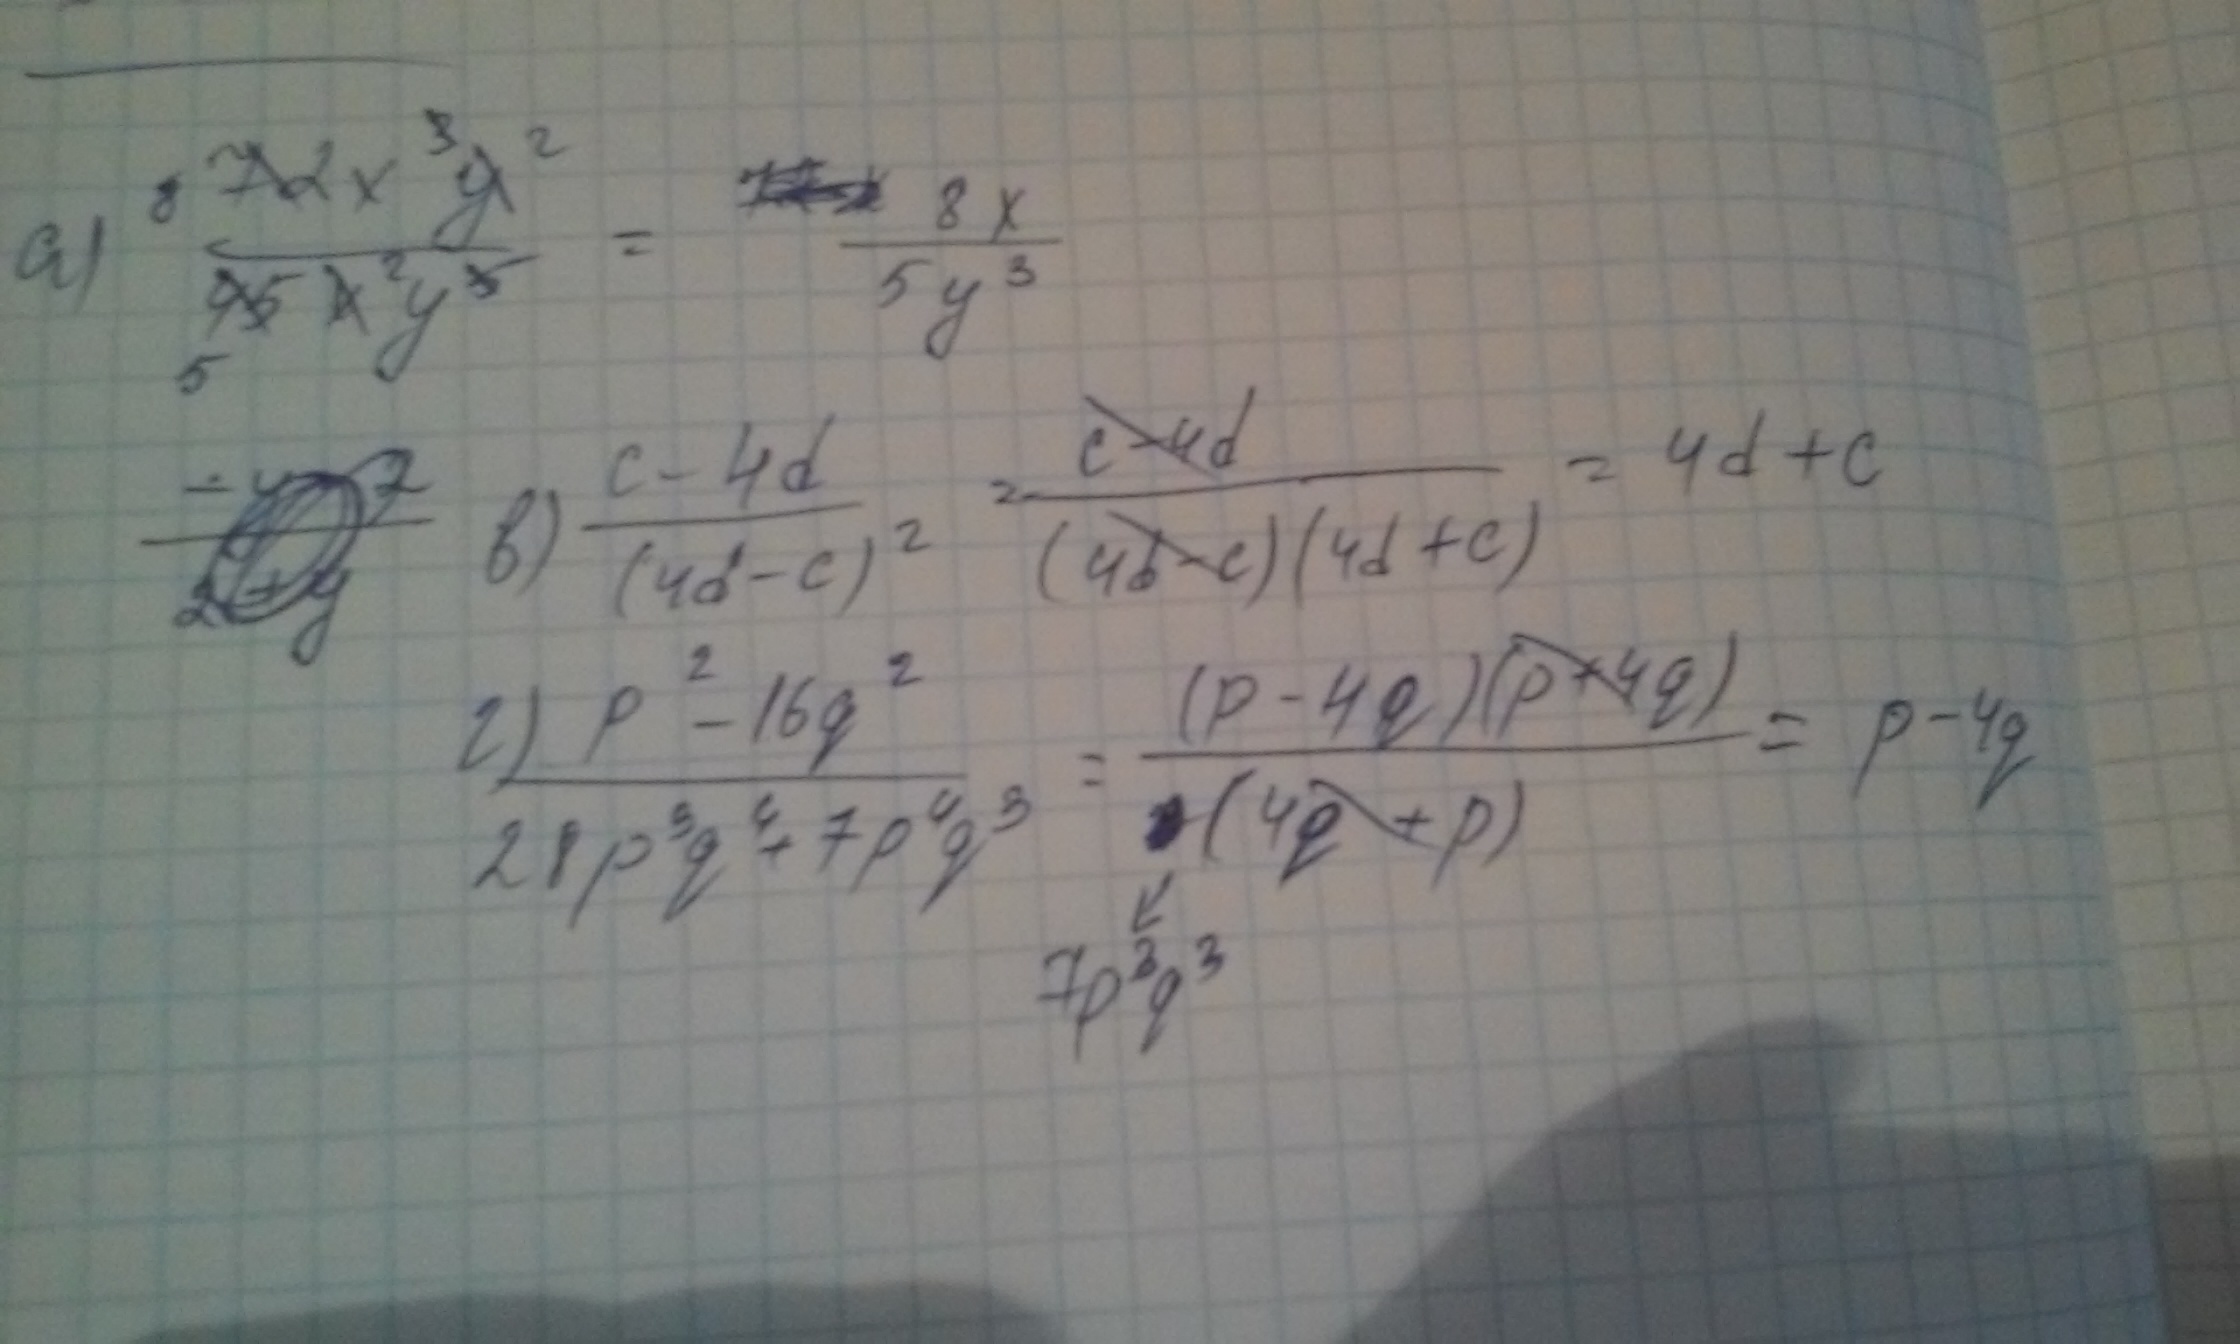 а) 8 72x³y² / 45x²y⁵ 5 = 8x / 5y³
в) c - 4d / (4d - c)² = c - 4d / (4d - c)(4d + c) = 4d + c
г) p² - 16q² / 28p³q⁴ + 7p⁴q³ = (p - 4q)(p + 4q) / (4q + p) = p - 4q
7p³q³